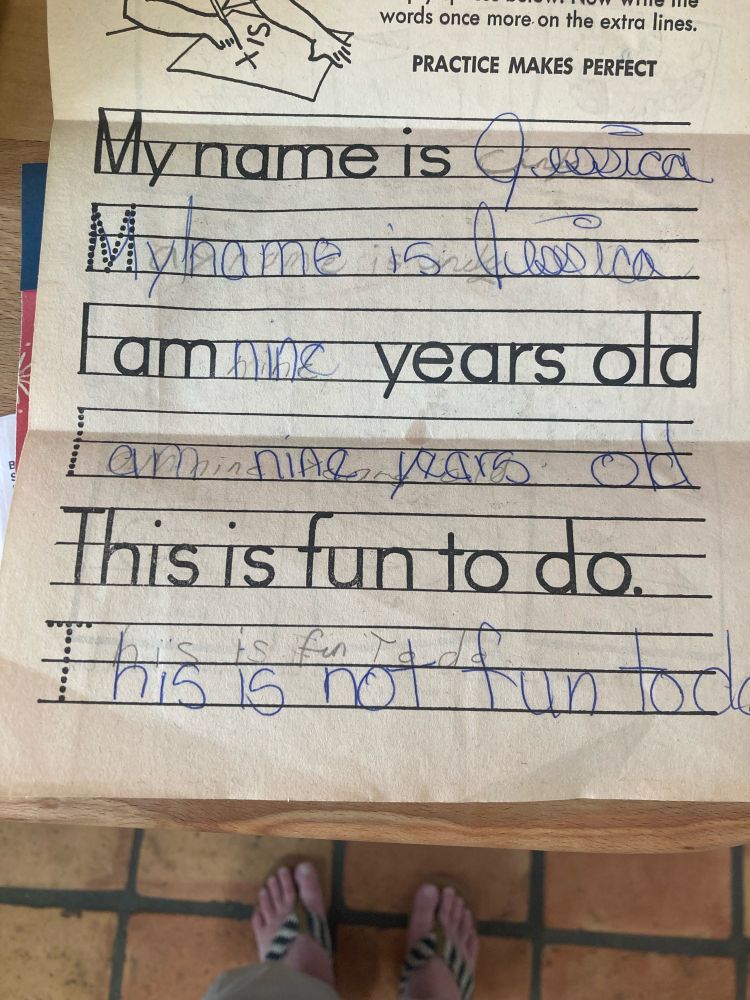 words once more on the extra lines.
PRACTICE MAKES PERFECT
SIX
My name is Jessica
My name is Jessica
I am nine years old
I am nine years old
This is fun to do.
his is fun To do
This is not fun to do